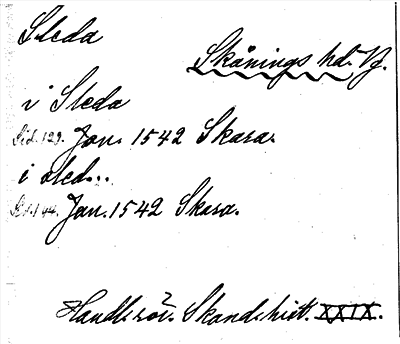 Sleda
Skånings hd. Vg.
i Sleda
Sid. 129. Jan. 1542 Skara.
i sled...
Sid. 144. Jan. 1542 Skara.
Handl. rör. Skand. hist. XXIX.